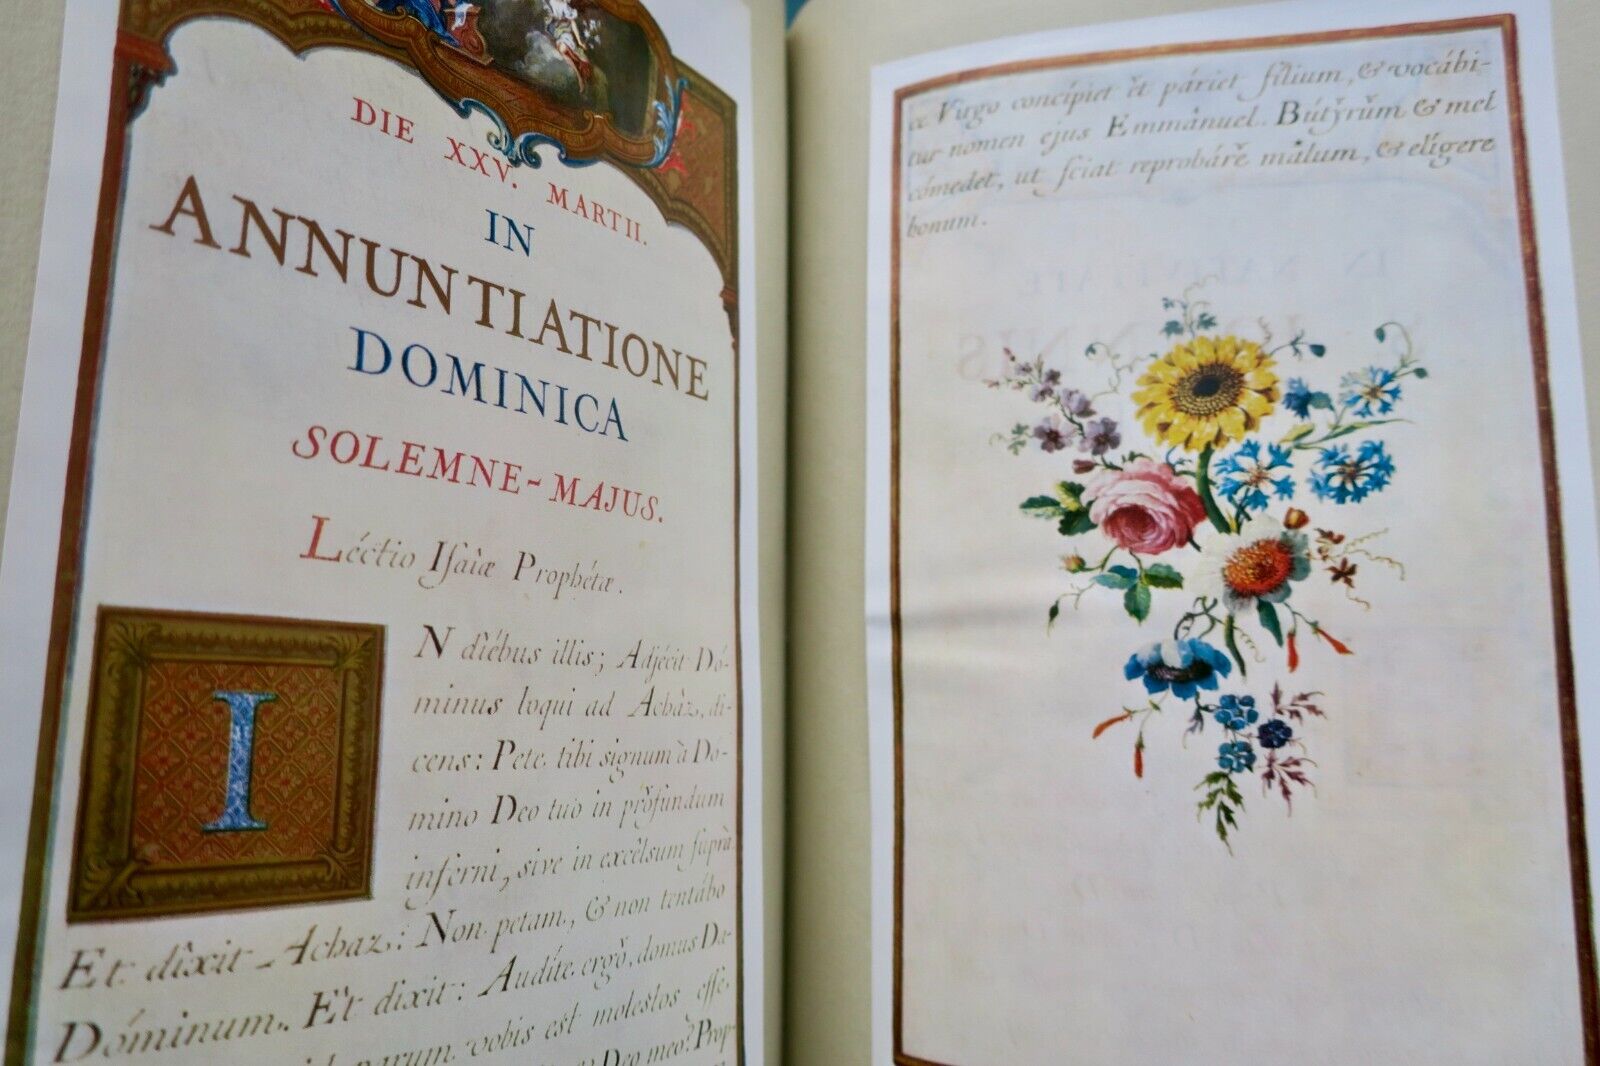 DIE XXV. MARTII.
IN
ANNUNTIATIONE
DOMINICA
SOLEMNE-MAJUS.
Léctio Iſaiæ Prophétæ.
IN diébus illis; Adjécit Dó-
minus loqui ad Achàz, di-
cens: Pete tibi signum à Dó-
mino Deo tuo in prŏfundum
inferni, sive in excélsum ſuprà.
Et dîxit Achaz: Non petam, & non tentábo
Dóminum. Et dixit: Audíte ergŏ, domus Da-
parum vobis est moleſtos eſſe,
Deo meo? Prop-
ce Virgo concípiet ĕt páriet fílium, & vocábi-
tur nomen ejus Emmánuel. Bútўrŭm & mel
cómedet, ut ſciat reprobárĕ málum, & elígere
bonum.